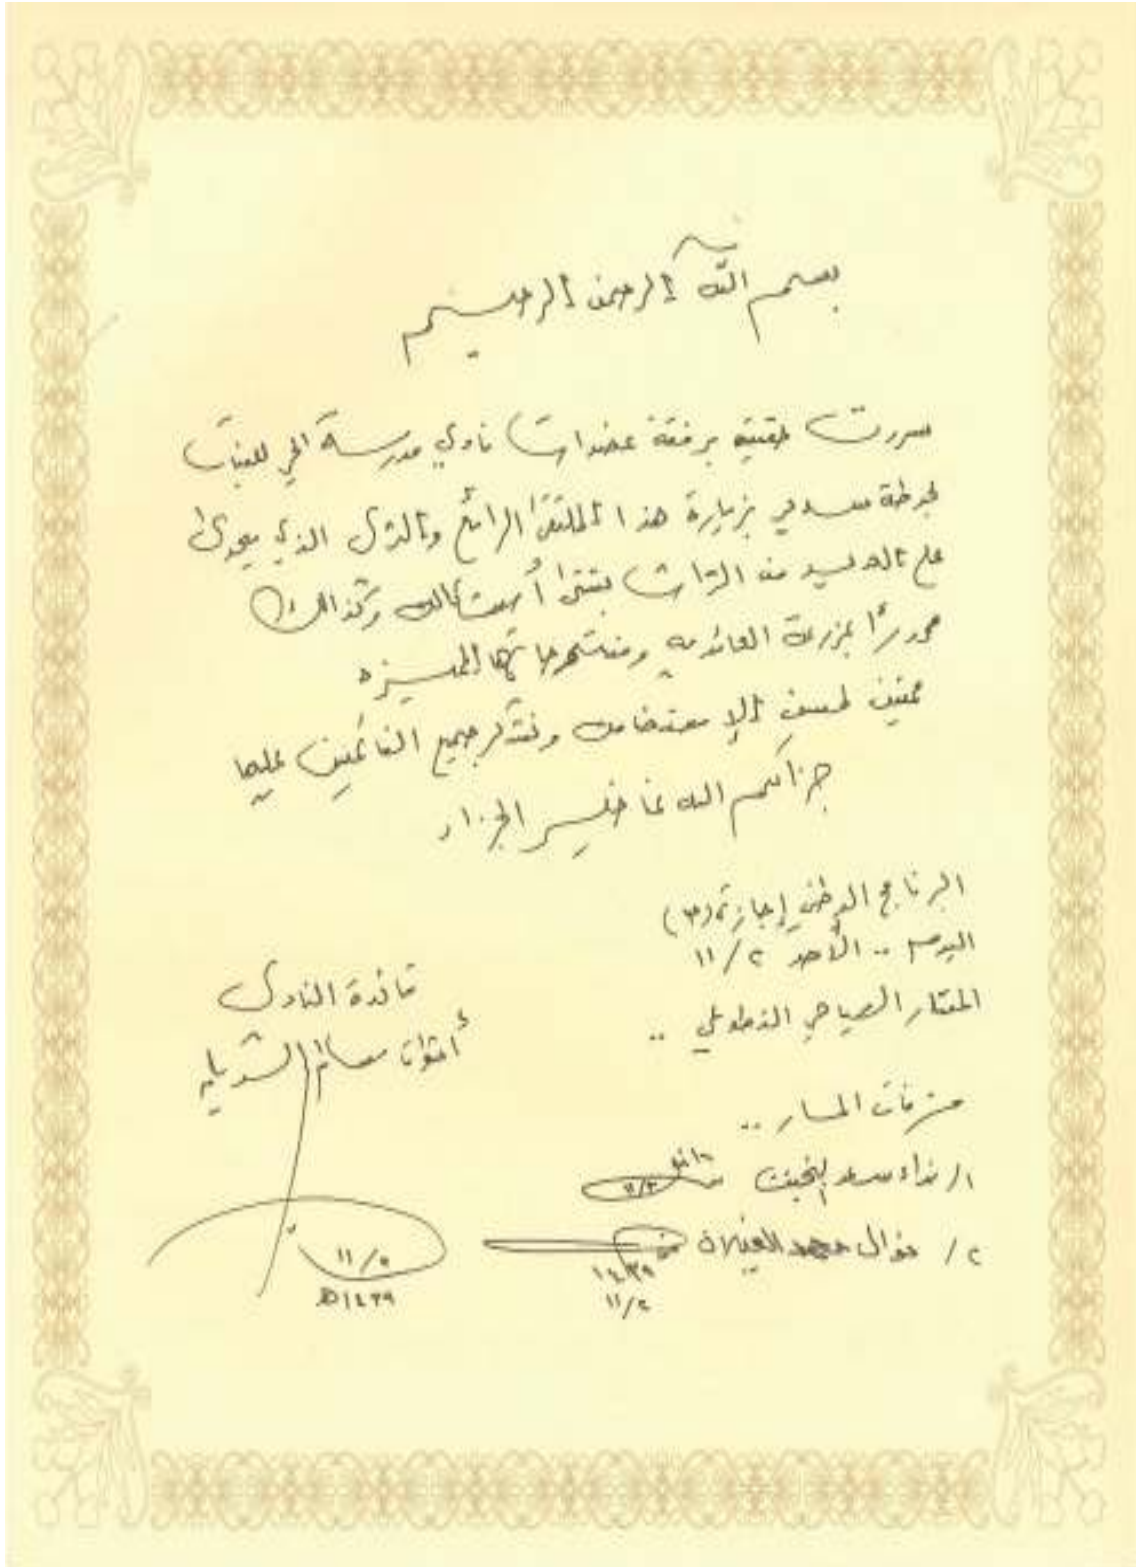 بسم الله الرحمن الرحيم
سررت حقيقة برفقة عضوات نادي مدرسة الحي للبنات
بحوطة سدير بزيارة هذا الملتقى الرائع والثري الذي يحوي
على العديد من التراث بشتى أشكاله وكذلك
مرورًا بمزرعة العائدية ومنتجاتها المميزه
ممتنين لحسن الإستضافه ونشكر جميع القائمين عليها
جزاكم الله عنا خير الجزاء
البرنامج الوطني إجازتي (٣)
اليوم .. الأحد ١١/٢
المسار السياحي التطوعي ..
مشرفات المسار ..
١/ نداء سعد البخيت
١١/٢
٢/ نوال محمد
١٤٣٩
١١/٢
قائدة النادي
سالم
١١/٥
١٤٣٩هـ